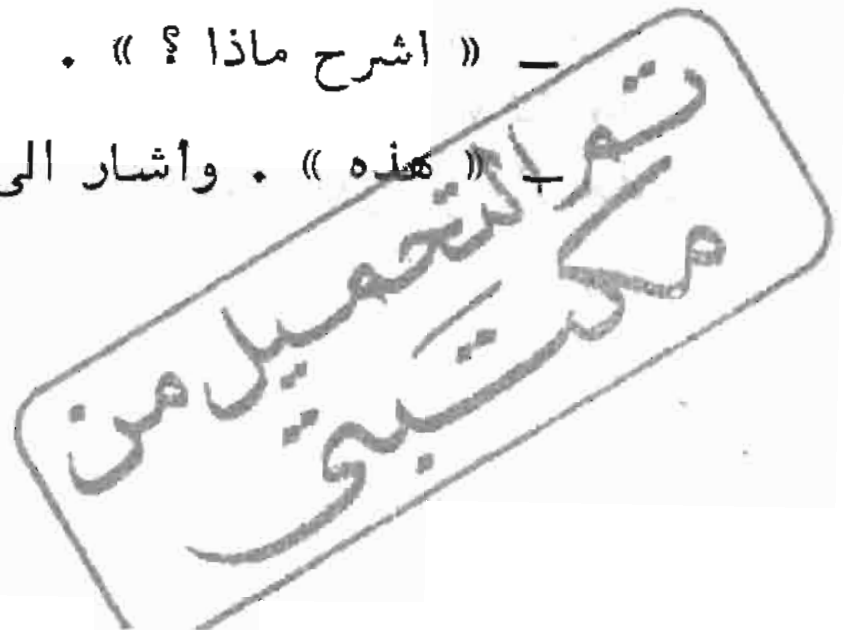 – « اشرح ماذا ؟ » .
– « هذه » . وأشار الى
تم التحميل من
مكتبتي